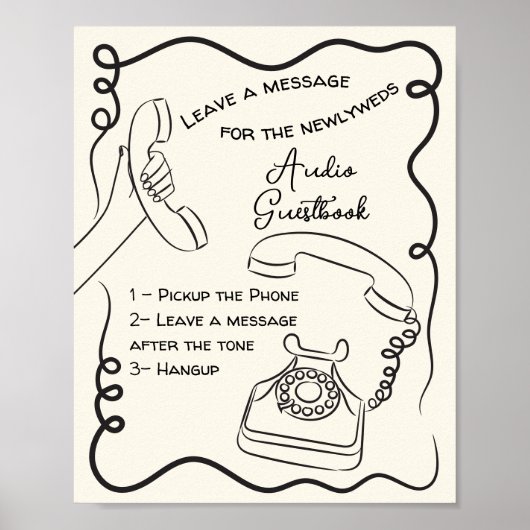 Leave a message
for the newlyweds
Audio
Guestbook
1- Pickup the Phone
2- Leave a message
after the tone
3- Hangup